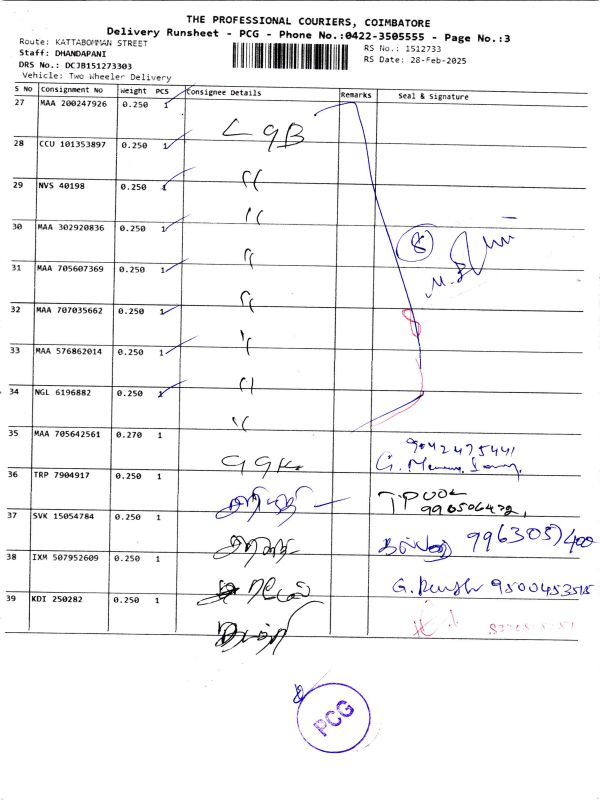 THE PROFESSIONAL COURIERS, COIMBATORE
Delivery Runsheet - PCG - Phone No.:0422-3505555 - Page No.:3
Route: KATTABOMMAN STREET
RS No.: 1512733
Staff: DHANDAPANI
RS Date: 28-Feb-2025
DRS No.: DCJB151273303
Vehicle: Two Wheeler Delivery
S No Consignment No Weight PCS Consignee Details Remarks Seal & Signature
27 MAA 200247926 0.250 1
LGB
28 CCU 101353897 0.250 1
"
29 NVS 40198 0.250 1
"
30 MAA 302920836 0.250 1
"
8
31 MAA 705607369 0.250 1
"
32 MAA 707035662 0.250 1
"
33 MAA 576862014 0.250 1
"
34 NGL 6196882 0.250 1
"
35 MAA 705642561 0.270 1
GGK 9042475441
36 TRP 7904917 0.250 1
37 SVK 15054784 0.250 1
9963057400
38 IXM 507952609 0.250 1
9500453515
39 KDI 250282 0.250 1
PCG